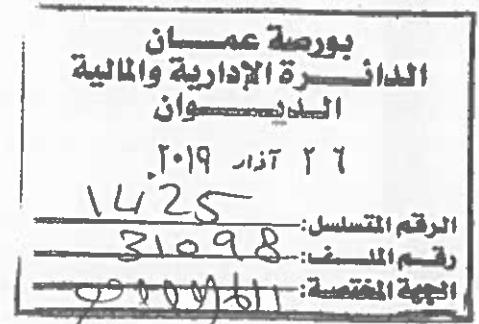 بورصة عمـــان
الدائـــرة الإدارية والمالية
الـديـــوان
٢٦ آذار ٢٠١٩
الرقم المتسلسل: 1425
رقم الملف: 31098
الجهة المختصة: